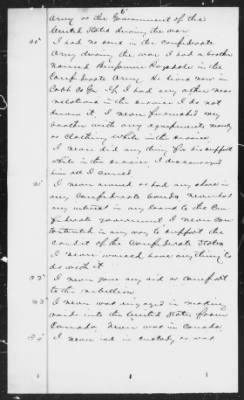 6
Army or the Government of the
United States during the war
20" I had no sons in the Confederate
Army during the war. I had a brother
named Benjamin Ragsdale in the
Confederate Army. He lives now in
Cobb Co Ga. If I had any other near
relations in the service I do not
know it. I never furnished my
brother with any equipments money
or clothing while in the service
I never did any thing for his support
while in the service I discouraged
him all I could
21" I never owned or had any share in
any Confederate bonds never had
any interest in any loans to the Con-
federate government I never con-
tributed in any way to support the
credit of the Confederate States
I never would have anything to
do with it
22" I never gave any aid or comfort
to the rebellion
23" I never was engaged in making
raids into the United States from
Canada never was in Canada
24" I never was in custody or was